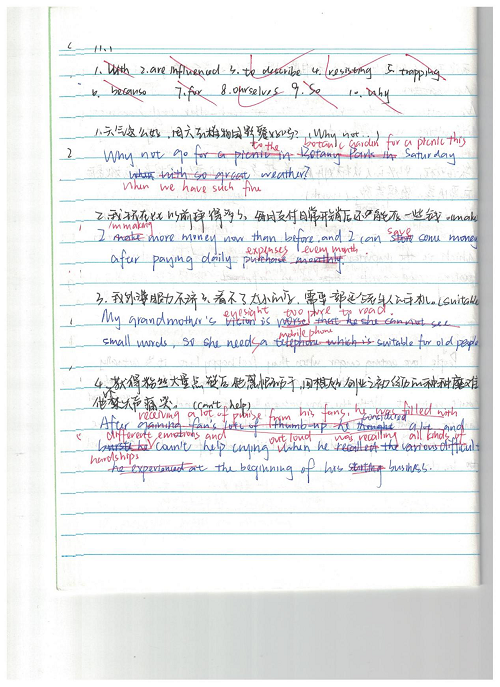 11.1
1. With 2. are influenced 3. to describe 4. resisting 5. trapping
6. because 7. for 8. ourselves 9. So 10. Why
1. 天气这么好,周六去植物园野餐好吗? (Why not...)
to the botanic garden for a picnic this
2 Why not go for a picnic in Botany Park in Saturday
when with so great weather?
when we have such fine
2. 我现在比以前挣得多,每月支付日常开销后还能存一些钱。
I'm making save
I make more money now than before, and I can some money
expenses every month.
after paying daily purchase monthly.
3. 我外婆眼力不济,看不了太小的字,需要一部适合老年人的手机。(suitable
eyesight too pure to read.
My grandmother's is worse that he she can not see
mobile phone
small words, so she needs a telephone which is suitable for old people
4. 获得粉丝大量点赞后他,回想起创业之初经历的种种磨难
他 大声痛哭。 (can't help)
receiving a lot of praise from his fans, he was filled with
After gaining fan's lots of thumb up he thought a lot and
considered
different emotions and out loud was recalling all kinds of
he can't help crying when he recalled the various difficult
hardships
he experienced at the beginning of his starting business.